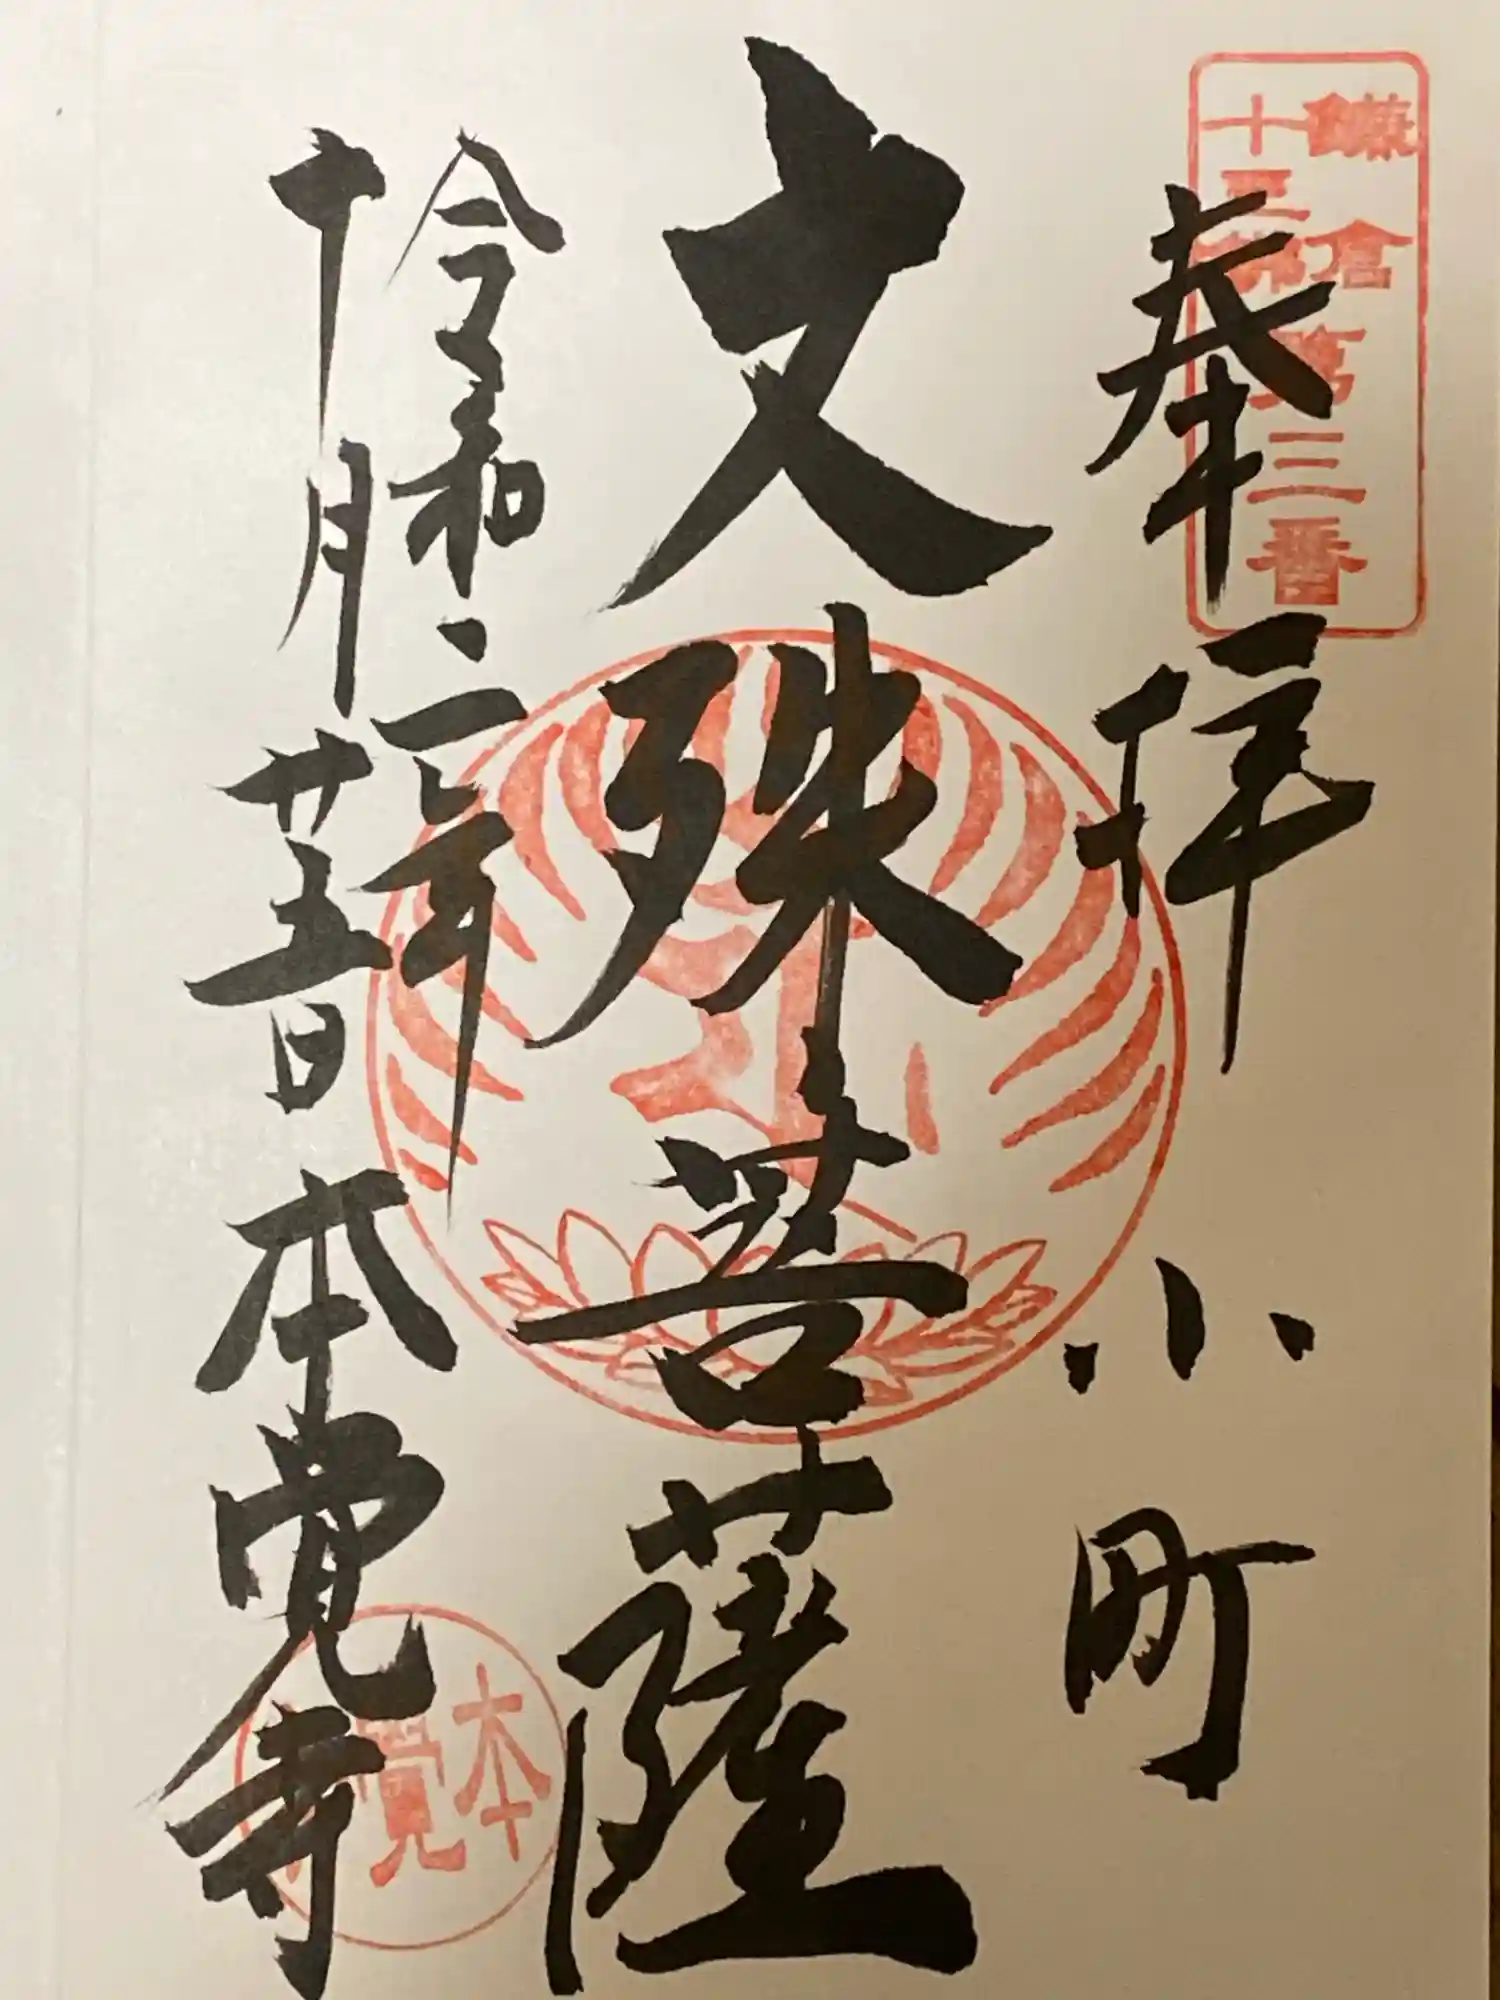 鎌倉
十三佛
第三番
奉拝 小町
文殊菩薩
令和二年
十月廿五日 本覚寺
本覺